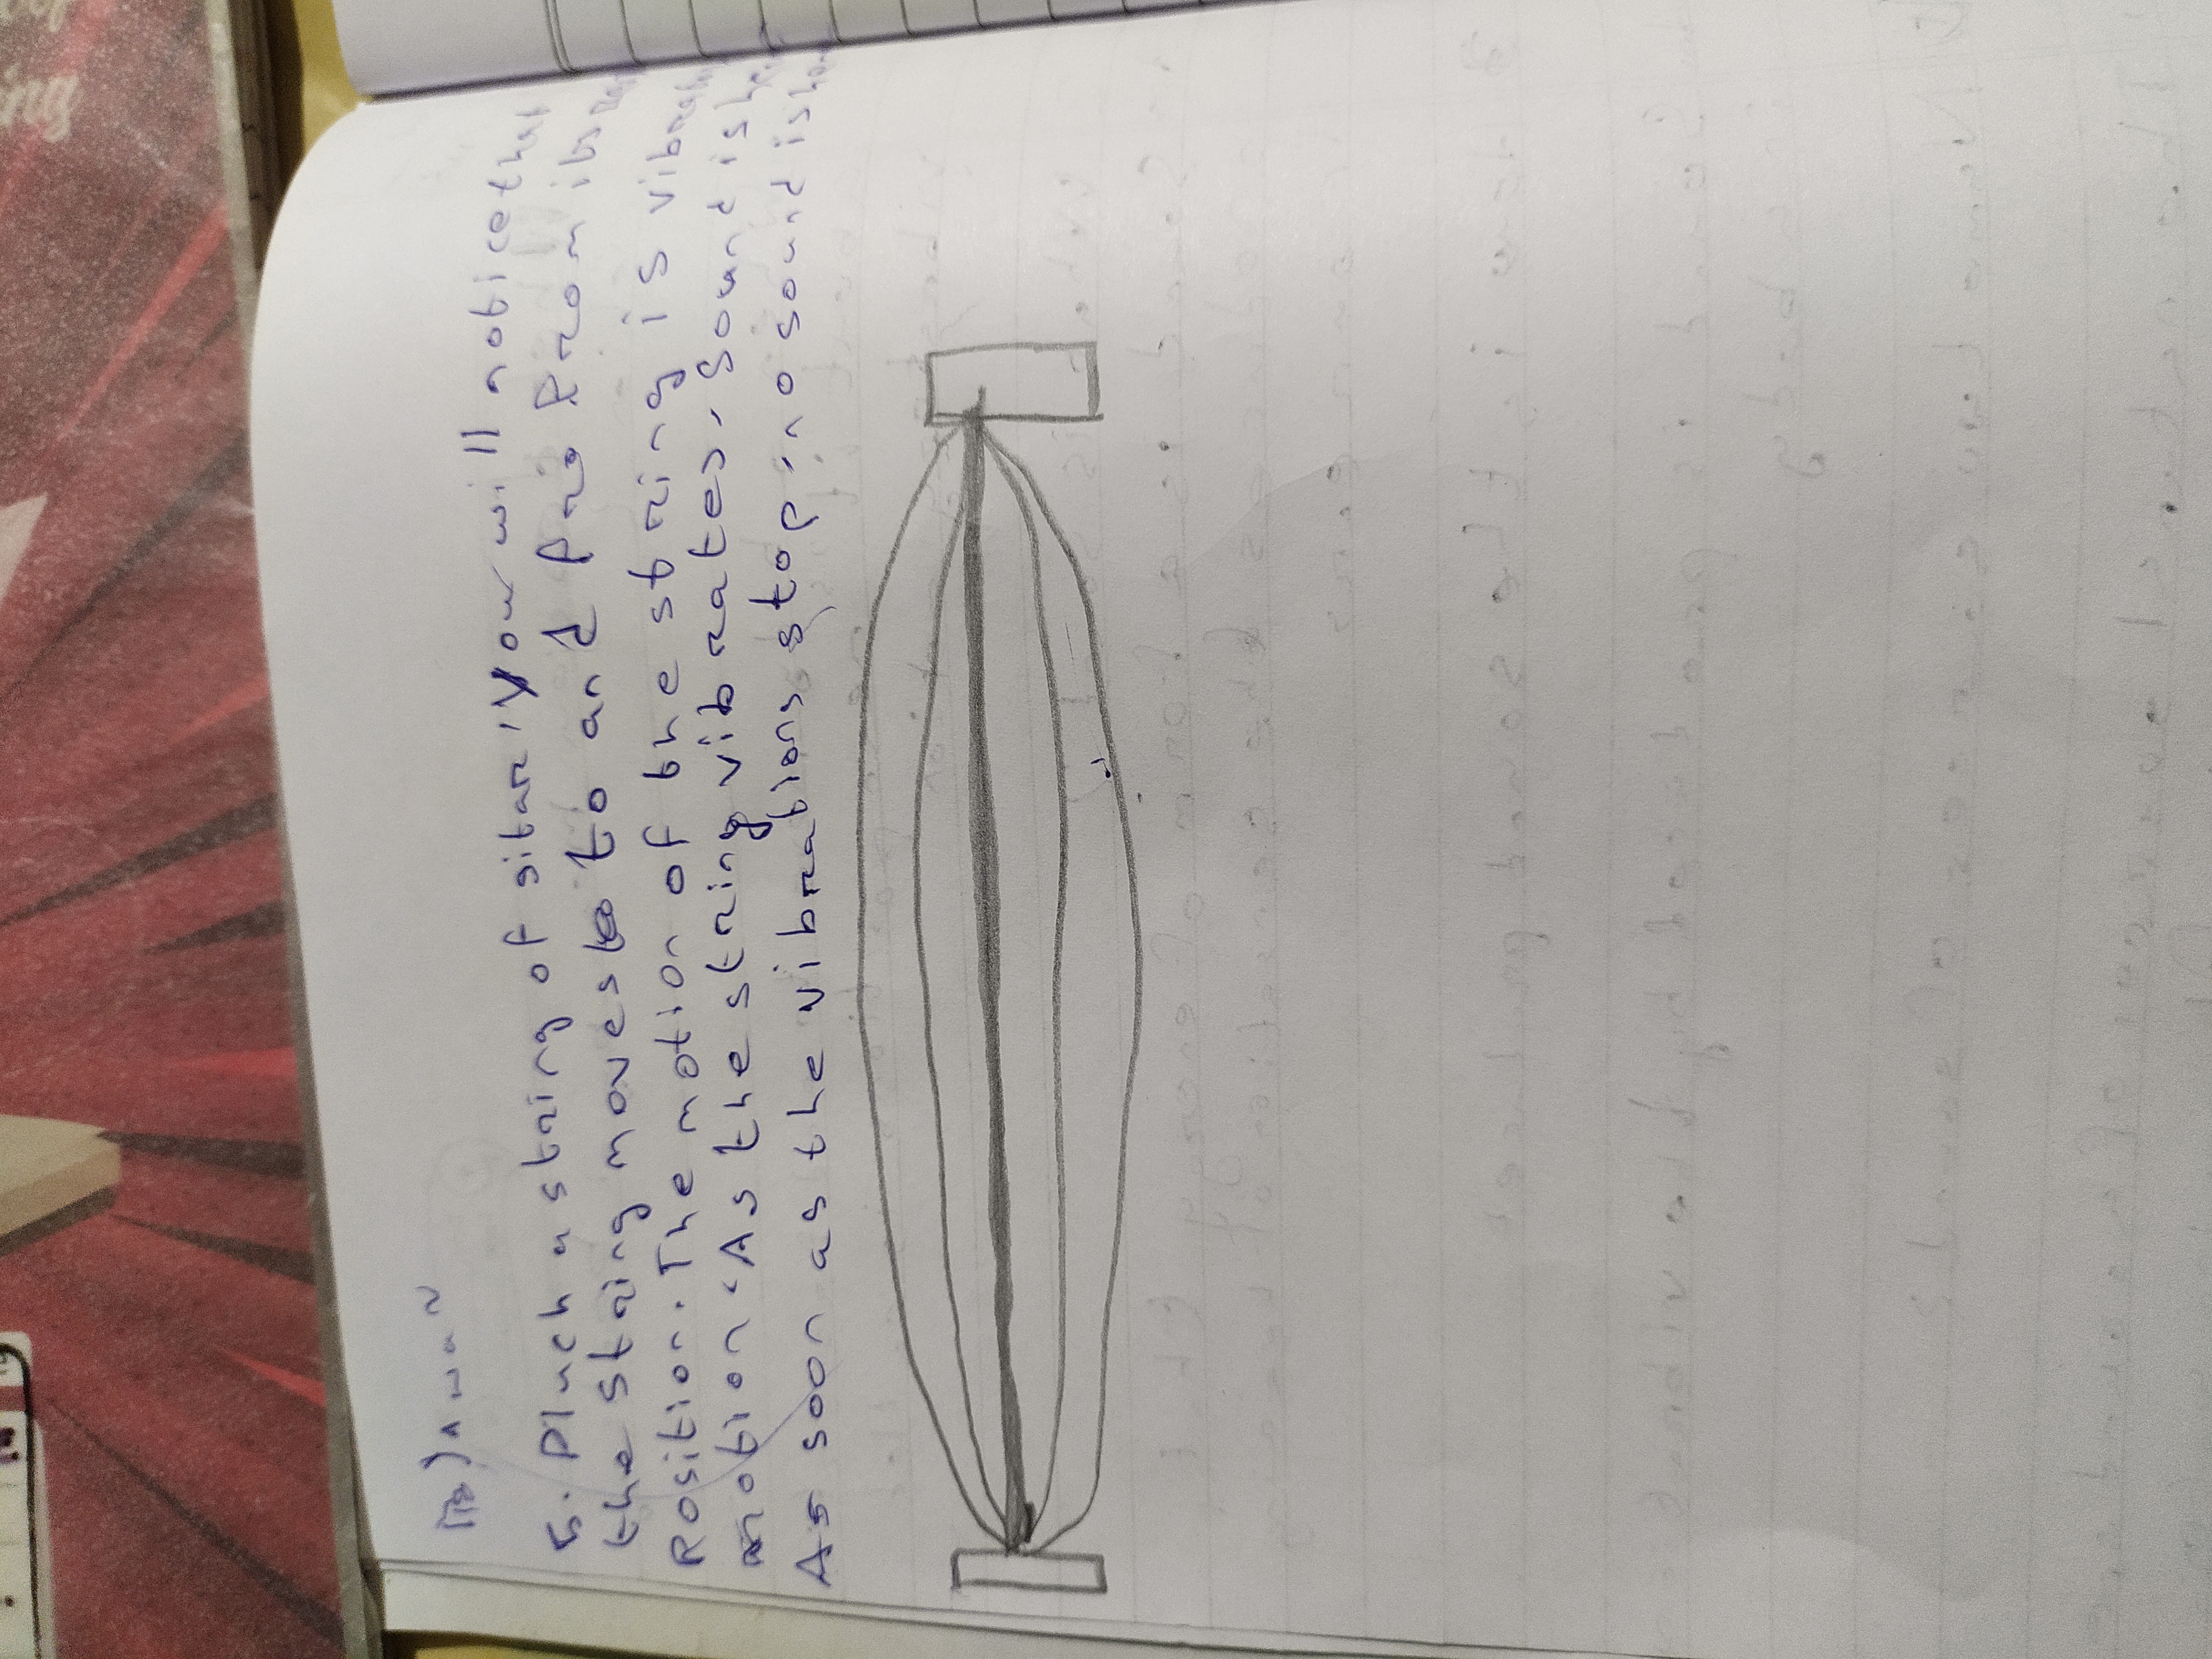 5. Pluck a string of sitar. You will notice that
the string moves to to and fro from its
Position. The motion of the string is
motion. As the string vibrates, sound is
As soon as the vibrations stop, no sound is
ing